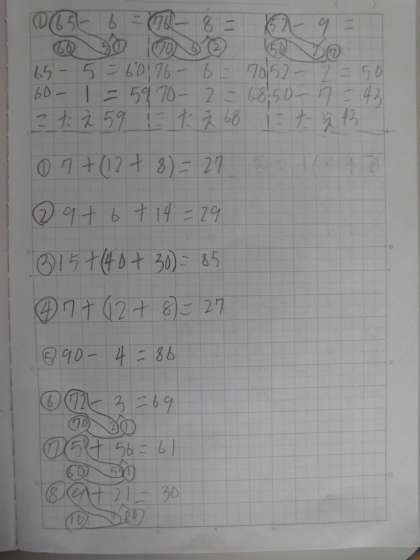 ① 65 - 6 = 76 - 8 = 52 - 9 =
60 5 1 70 6 2 50 2 7
65 - 5 = 60 76 - 6 = 70 52 - 2 = 50
60 - 1 = 59 70 - 2 = 68 50 - 7 = 43
= たえ 59 = たえ 68 = たえ 43
① 7 + (12 + 8) = 27
② 9 + 6 + 14 = 29
③ 15 + (40 + 30) = 85
④ 7 + (12 + 8) = 27
⑤ 90 - 4 = 86
⑥ 72 - 3 = 69
70 2 1
⑦ 5 + 56 = 61
60 1
⑧ 9 + 21 = 30
10